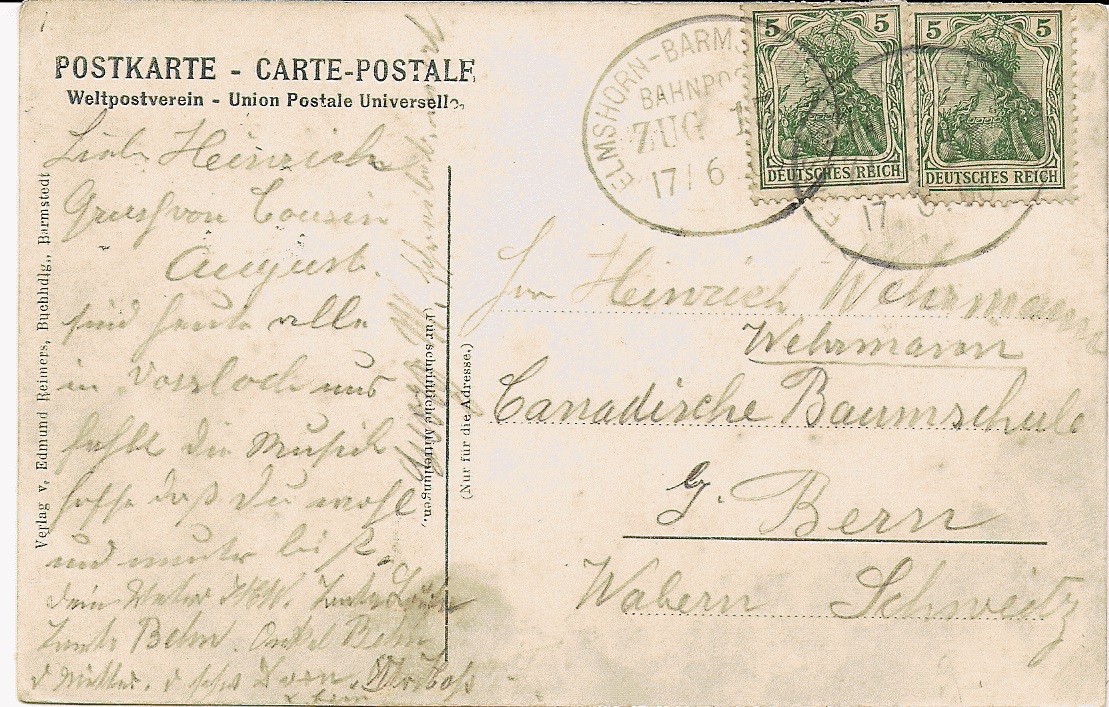 POSTKARTE - CARTE-POSTALE
Weltpostverein - Union Postale Universelle.
Verlag v. Edmund Reimers, Buchhdlg., Barmstedt
Lieber Heinrich
Gruß von Cousin
August.
sind heute alle
in Vossloch uns
fehlt die Musik
hoffe daß Du wohl
und munter bist.
Dein Vater Tante
Tante Behn. Onkel Behn
(Für schriftliche Mitteilungen.)
(Nur für die Adresse.)
ELMSHORN-BARMS
BAHNPOS
ZUG 1
17/6
17
5 5
DEUTSCHES REICH
5 5
DEUTSCHES REICH
Heinrich Wehrmann
Wehrmann
Canadische Baumschule
Bern
Wabern Schweitz